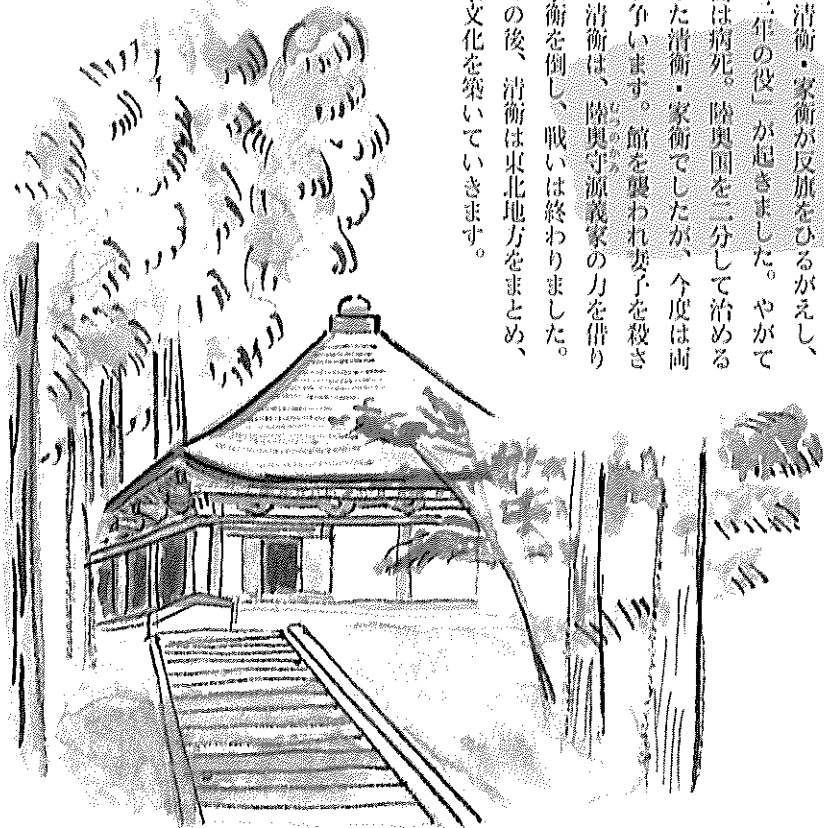 清衡・家衡が反旗をひるがえし、
年の役」が起きました。やがて
は病死。陸奥国を二分して治める
た清衡・家衡でしたが、今度は両
争います。館を襲われ妻子を殺さ
清衡は、陸奥守源義家の力を借り
衡を倒し、戦いは終わりました。
の後、清衡は東北地方をまとめ、
文化を築いていきます。